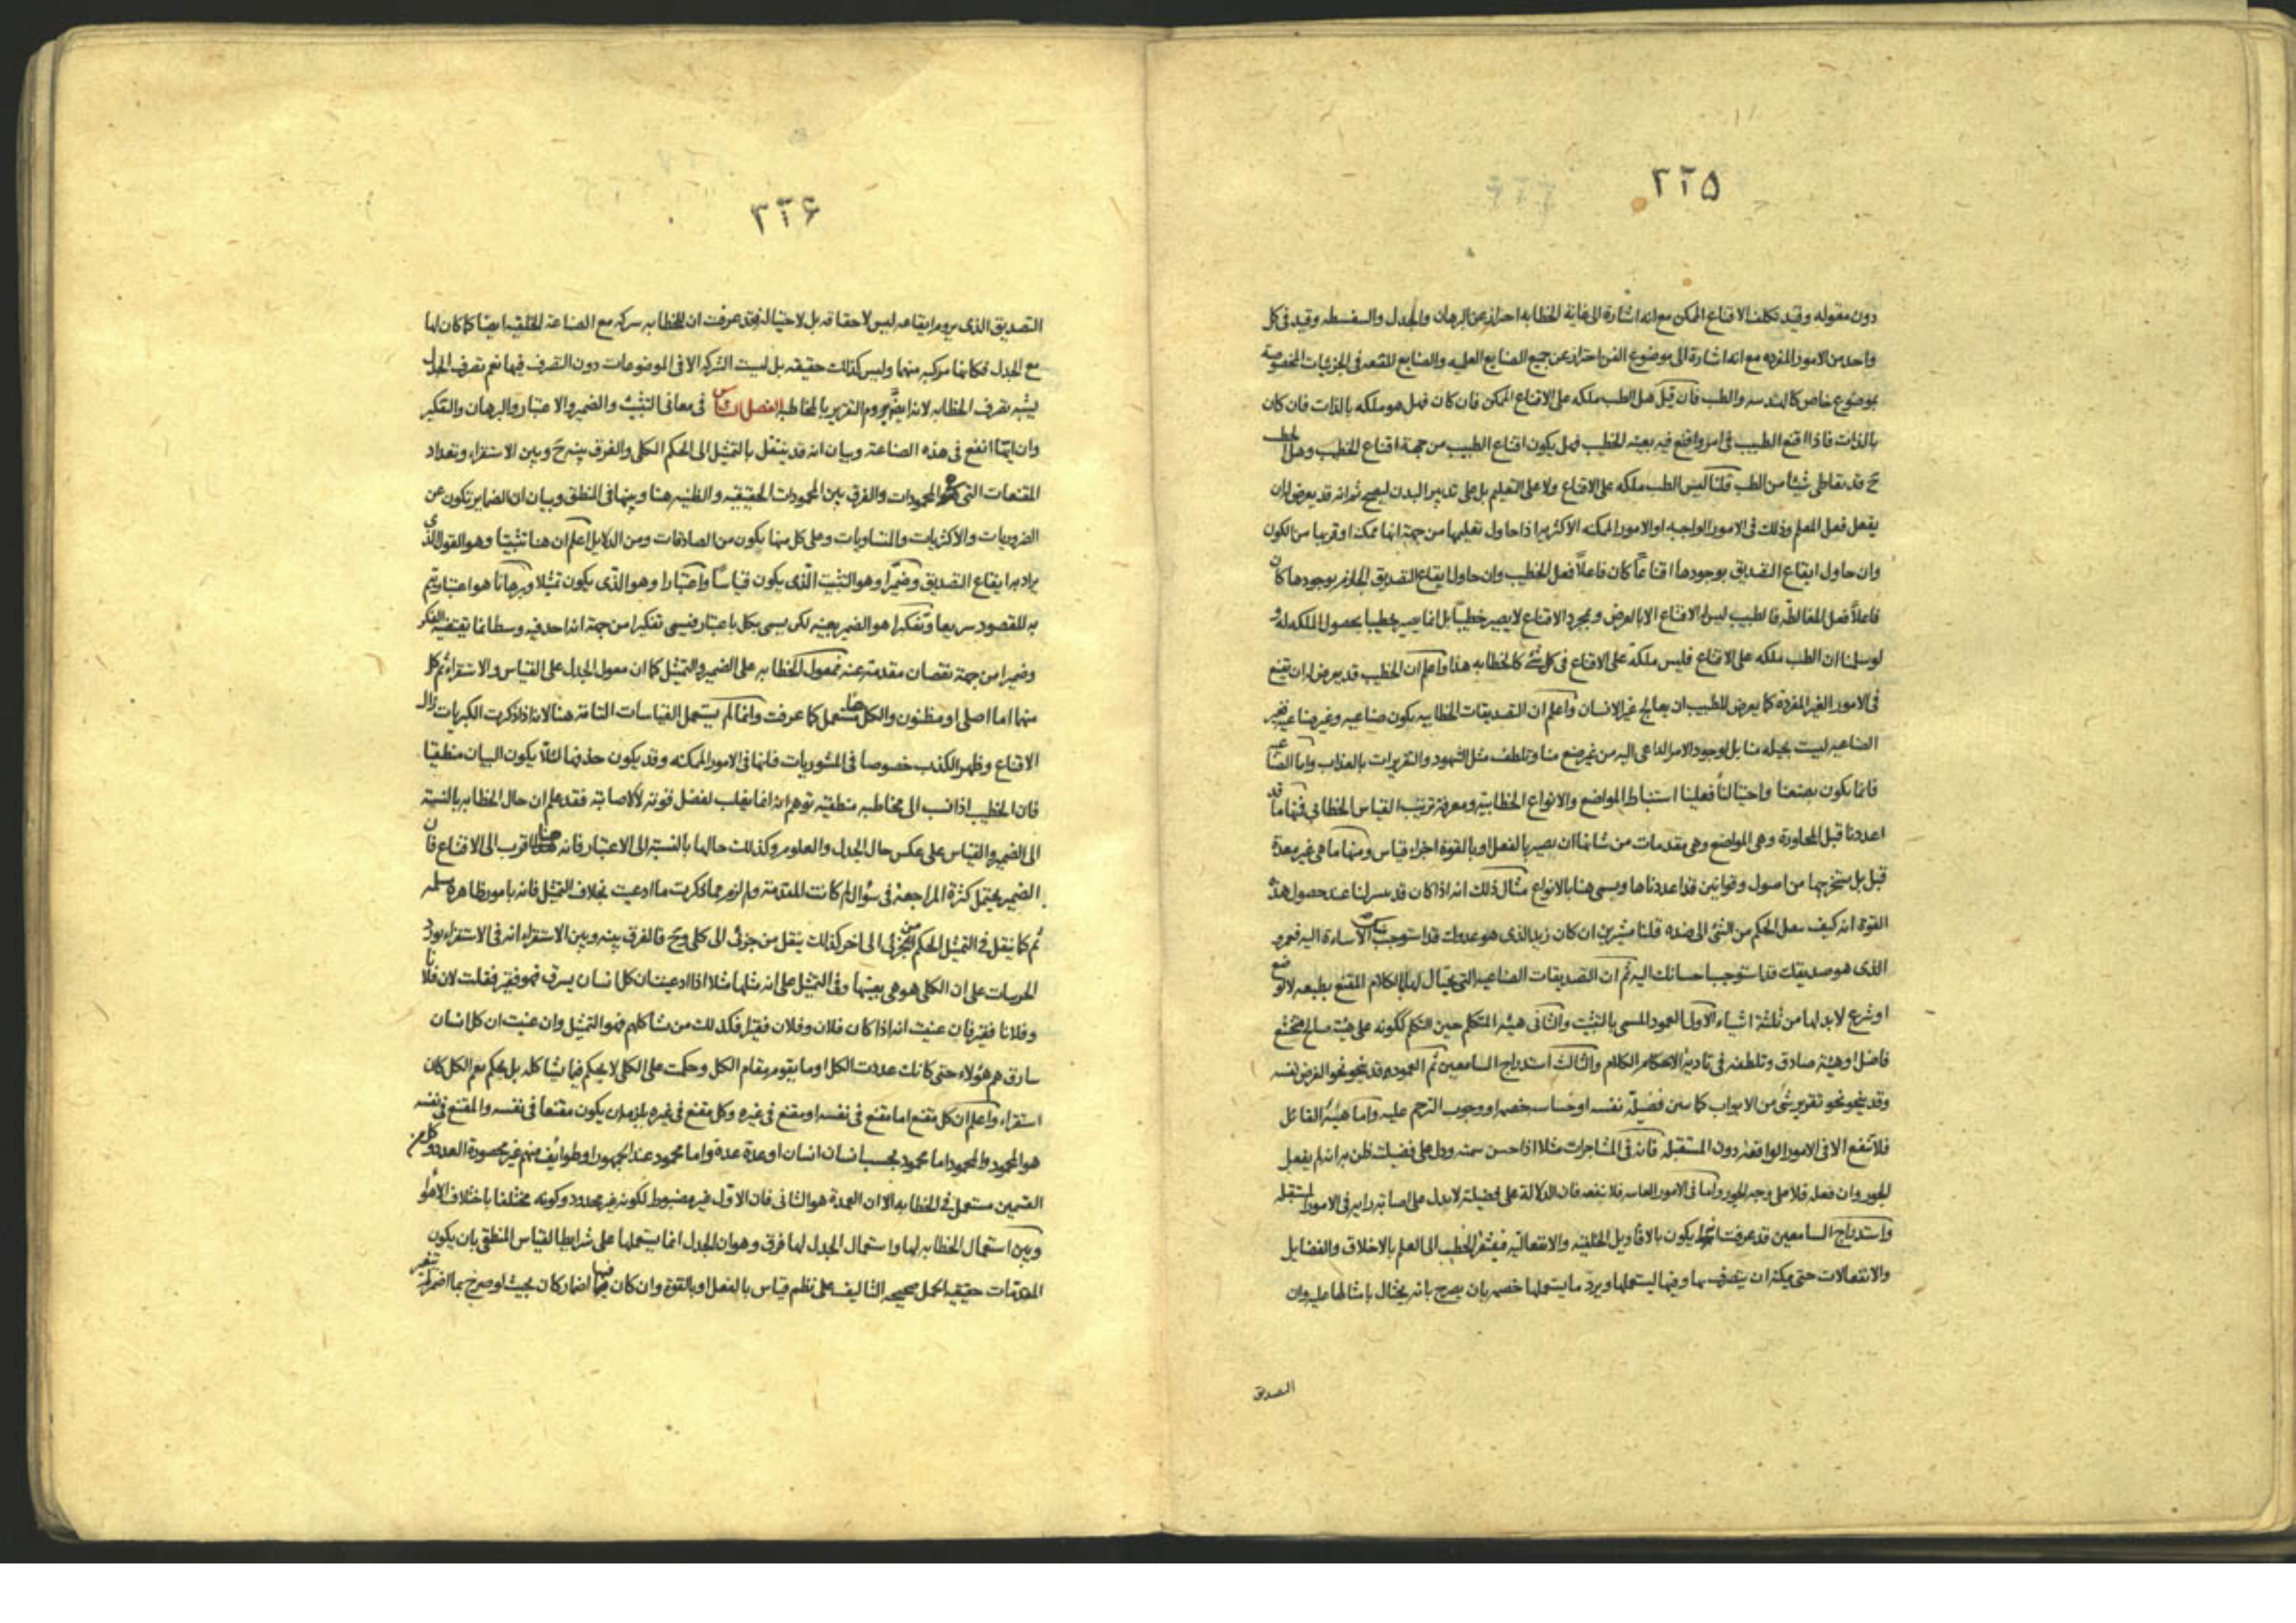 ٢٢٥
دون مقوله وقيد تكلف الاقناع الممكن مع انه اشارة الى غاية الخطابه احتراز عن البرهان والجدل والسفسطه وقيد فى كل
واحد من الامور المفرده مع انه اشارة الى موضوع الفن احتراز عن جميع الصنايع العلميه والصنايع المقنعه فى الجزئيات المخصوصة
بموضوع خاص كالهندسه والطب فان قيل هل الطب ملكه على الاقناع الممكن فان كان فهل هو ملكه بالذات فان كان
بالذات فاذا اقنع الطبيب فى امر واقنع فيه بعينه الخطيب فهل يكون اقناع الطبيب من جهة اقناع الخطيب وهل الخطيب
ح قد تعاطى شيئا من الطب قلنا ليس الطب ملكه على الاقناع ولا على التعليم بل على تدبير البدن ليصح ثم انه قد يعرض له ان
يفعل فعل المعلم وذلك فى الامور الواجبه او الامور الممكنه الاكثريه اذا حاول تعليمها من جهة انها ممكنه او قريبا من الكون
وان حاول ايقاع التصديق بوجودها اقناعاً كان فاعلاً فعل الخطيب وان حاول ايقاع التصديق الجازم بوجودها كان
فاعلاً فعل المغالطه فالطبيب ليس له الاقناع الا بالعرض وبمجرد الاقناع لا يصير خطيباً بل انما يصير خطيبا بحصول الملكه له و
لو سلمنا ان الطب ملكه على الاقناع فليس ملكة على الاقناع فى كل شئ كالخطابه هذا واعلم ان الخطيب قد يعرض له ان يقنع
فى الامور الغير المفردة كما يعرض للطبيب ان يعالج غير الانسان واعلم ان التصديقات الخطابيه يكون صناعيه وغير صناعيه فغير
الصناعيه ليست بحيله منا بل لوجود الامر الداعى اليه من غير صنع منا وتلطف مثل الشهود والتقريرات بالعذاب واما الصناعيه
فانما يكون بصنعنا واحتيالنا فعلينا استنباط المواضع والانواع الخطابية ومعرفة ترتيب القياس الخطابى فمنها ما قد
اعددنا قبل المحاورة وهى المواضع وهى مقدمات من شانها ان يصير بالفعل او بالقوة اجزاء قياس ومنها ما هى غير معدة
قبل بل يستخرجها من اصول وقوانين قد اعددناها ويسمى هنا بالانواع مثال ذلك انه اذا كان قد يسر لنا عند حصول هذه
القوة انه كيف ينقل الحكم من الشئ الى ضده قلنا مشيرين ان كان زيد الذى هو عدوك قد استوجب الاساءة اليه فعمرو
الذى هو صديقك قد استوجب احسانك اليه ثم ان التصديقات الصناعيه التى يحتال لها بالكلام المقنع بطبعه لا لوضع
او شرع لا بد لها من ثلثة اشياء الاول العمود المسمى بالتثبيت والثانى هيئة المتكلم حين التكلم ككونه على هيئة صالح متخشع
فاضل او هيئة صادق وتلطفه فى تادية الاحكام الكلام والثالث استدراج السامعين ثم العمود قد ينحو نحو الغرض نفسه
وقد ينحو نحو تقرير شئ من الابواب كما سنن فضيلة نفسه او خساسه خصمه او وجوب الترحم عليه واما هيئة القائل
فلا تنفع الا فى الامور الواقعة دون المستقبله فانه فى المشاجرات مثلا اذا حسن سمته ودل على فضيلته ظن به انه لم يفعل
الجور وان فعله فلا على وجه الجور واما فى الامور العامه فلا ينفعه فان الدلالة على فضيلته لا يدل على اصابة رايه فى الامور المستقبله
واستدراج السامعين قد عرفت انه يكون بالاقاويل الخلقيه والانفعاليه فيفتقر الخطيب الى العلم بالاخلاق والفضايل
والانفعالات حتى يمكنه ان يتصرف بها وفيها ليستعملها ويرد ما يستعملها خصمه بان يصرح بانه يحتال بامثالها عليه وان
التصديق
٢٢۶
التصديق الذى يروم ايقاعه ليس لاحقاقه بل لاحتياله فقد عرفت ان للخطابه شركه مع الصناعة الخلقيه ايضا كما كان لها
مع الجدل فكانها مركبه منهما وليس كذلك حقيقه بل ليست الشركه الا فى الموضوعات دون التصرف فيها نعم تصرف الجدل
يشبه تصرف الخطابه لانه ايضاً يروم التقرير بالمخاطبه الفصل السادس فى معانى التثبيت والضمير والاعتبار والبرهان والتفكير
وان ايها انفع فى هذه الصناعة وبيان انه قد ينتقل بالتمثيل الى الحكم الكلى والفرق بينه ح وبين الاستقراء وتعداد
المقنعات التى هى المحمودات والفرق بين المحمودات الحقيقيه والظنيه هنا وبينها فى المنطق وبيان ان الضماير يكون عن
الضروريات والاكثريات والمتساويات وعلى كل منها يكون من الصادقات ومن الدلايل اعلم ان هنا تثبيتا وهو القول الذى
يراد به ايقاع التصديق وضميراً وهو التثبيت الذى يكون قياساً واعتبارا وهو الذى يكون تمثيلا وبرهاناً هو اعتبار يتم
به المقصود سريعا وتفكيرا هو الضمير بعينه لكن يسمى بكل باعتبار فيسمى تفكيرا من جهة انه احد فيه وسط انما يقتضيه الفكر
وضميرا من جهة نقصان مقدمة عنه فمعول الخطابه على الضمير والتمثيل كما ان معول الجدل على القياس والاستقراء ثم كل
منهما اما اصلى او مظنون والكل مستعمل كما عرفت وانما لم يستعمل القياسات التامه هنا لانه اذا ذكرت الكبريات زال
الاقناع وظهر الكذب خصوصا فى المشوريات فانها فى الامور الممكنه وقد يكون حذفها لئلا يكون البيان منطقيا
فان الخطيب اذا نسب الى مخاطبه منطقيه توهم انه انما يغلب لفضل قوته لا لاصابته فقد علم ان حال الخطابه بالنسبة
الى الضمير والقياس على عكس حال الجدل والعلوم وكذلك حالها بالنسبة الى الاعتبار فانه هنا اقرب الى الاقناع فان
الضمير يحتمل كثرة المراجعة فى سؤال لم كانت المقدمة ولم لزم مما ذكرت ما ادعيت بخلاف التمثيل فانه بامور ظاهره مسلمه
ثم كما ينقل فى التمثيل الحكم من جزئى الى اخر كذلك ينقل من جزئى الى كلى وح فالفرق بينه وبين الاستقراء انه فى الاستقراء يورد
الجزئيات على ان الكلى هو هى بعينها وفى التمثيل على انه مثلها مثلا اذا ادعيت ان كل انسان يسرق فهو فقير فقلت لان فلانا
وفلانا فقير فان عنيت انه اذا كان فلان وفلان فقير فكذلك من شاكلهم فهو التمثيل وان عنيت ان كل انسان
سارق هم هؤلاء حتى كانك عددت الكل او ما يقوم مقام الكل وحكمت على الكل لا بحكم فيما يشاكله بل بحكم يعم الكل كان
استقراء واعلم ان كل مقنع اما مقنع فى نفسه او مقنع فى غيره وكل مقنع فى غيره يلزم ان يكون مقنعا فى نفسه والمقنع فى نفسه
هو المحمود والمحمود اما محمود بحسب انسان انسان او عدة عدة واما محمود عند الجمهور او طوائف منهم غير محصورة العدد وكل من
القسمين مستعمل فى الخطابه الا ان العمدة هو الثانى فان الاول غير مضبوط لكونه غير محدود وكونه مختلفا باختلاف الاهواء
وبين استعمال الخطابه لها واستعمال الجدل لها فرق وهو ان الجدل انما يستعملها على شرايط القياس المنطقى بان يكون
المقدمات حقيقيه الحمل صحيحه التاليف على نظم قياس بالفعل او بالقوة وان كان فيها اضمار كان بحيث لو صرح بما اضمر لم يتغير